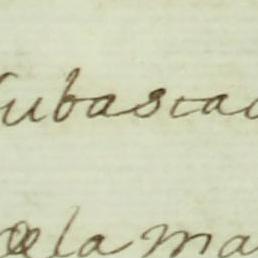 Subastad
de la ma